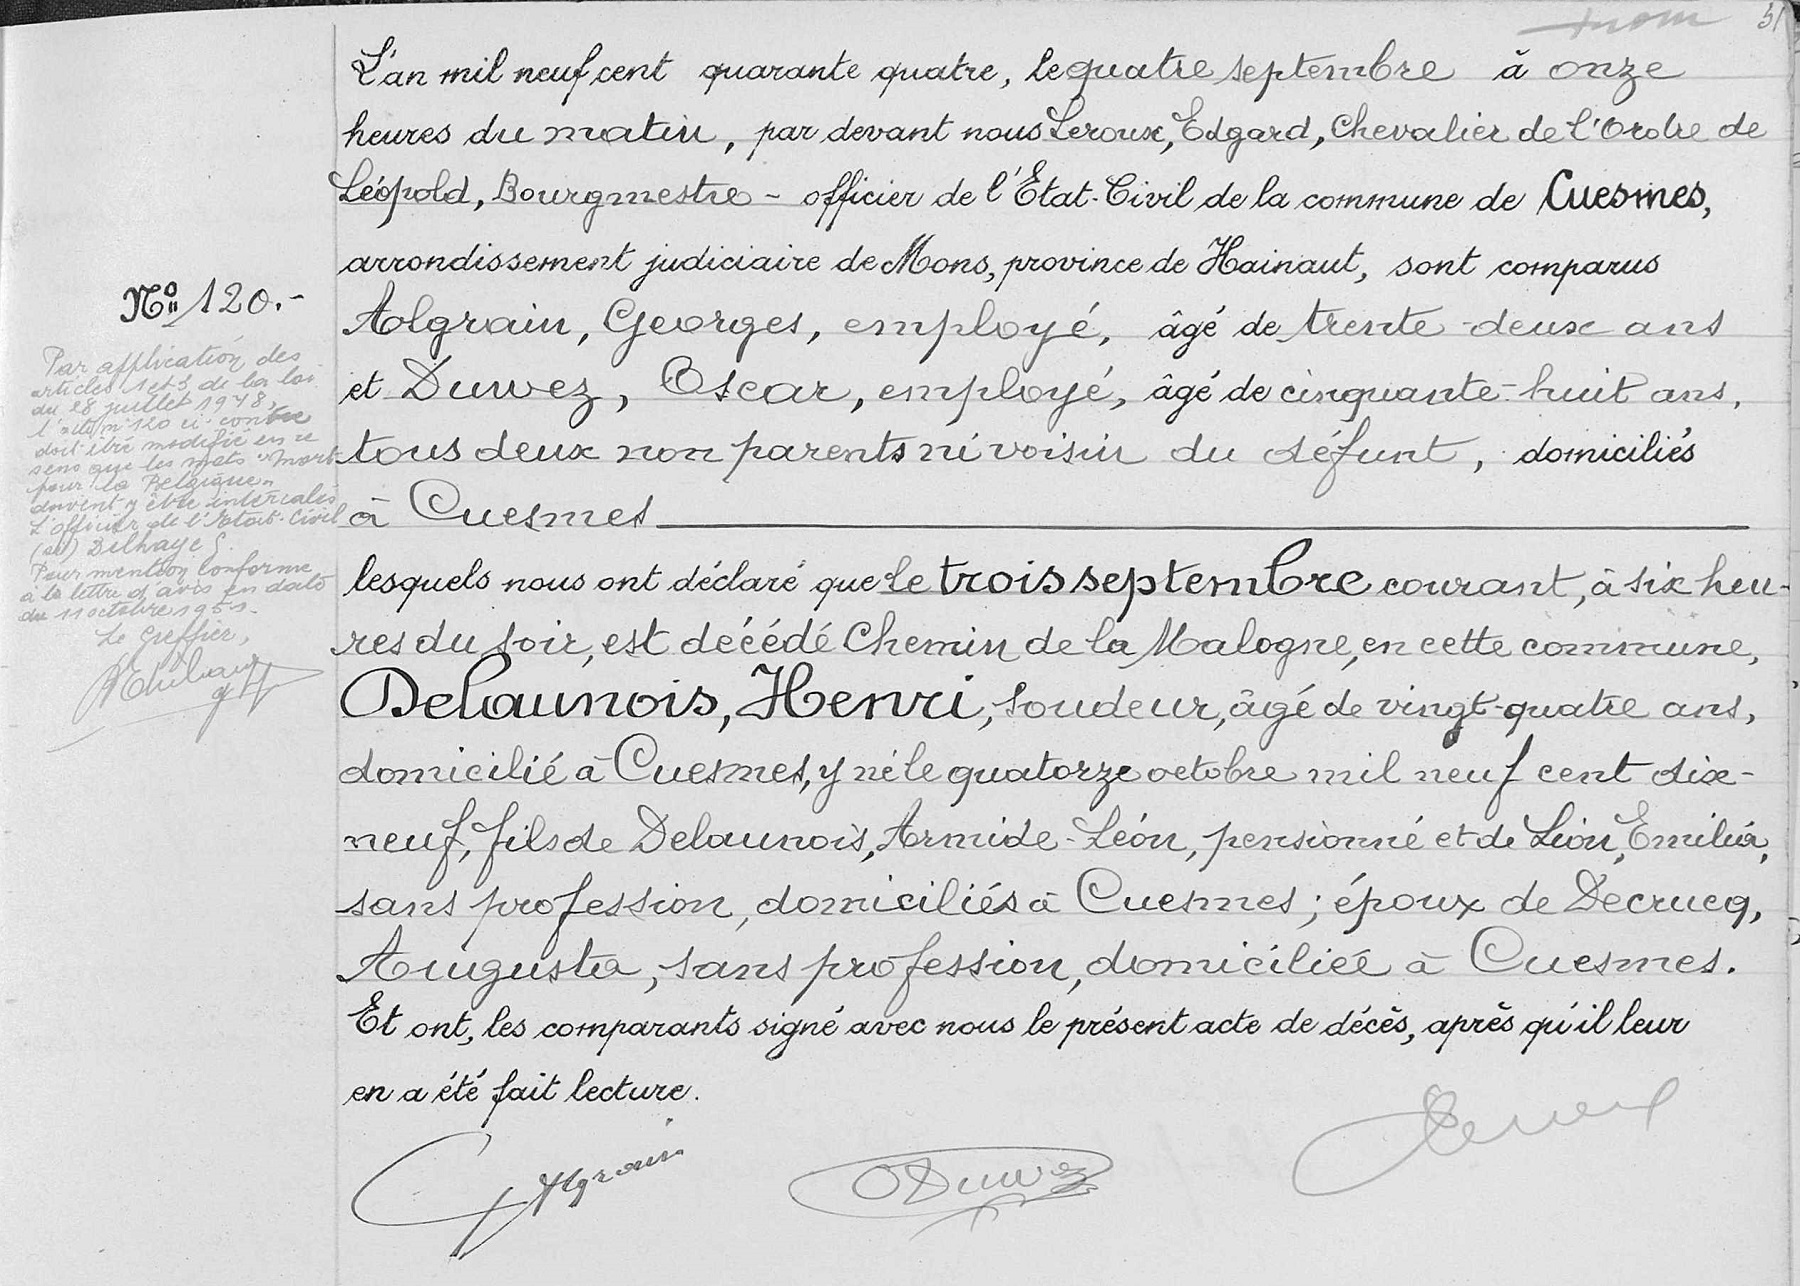 51
L'an mil neuf cent quarante quatre, le quatre septembre à onze
heures du matin, par devant nous Leroux, Edgard, Chevalier de l'Ordre de
Léopold, Bourgmestre - officier de l'Etat-Civil de la commune de Cuesmes,
arrondissement judiciaire de Mons, province de Hainaut, sont comparus
Algrain, Georges, employé, âgé de trente-deux ans
et Duwez, Oscar, employé, âgé de cinquante-huit ans,
tous deux non parents ni voisin du défunt, domiciliés
à Cuesmes
lesquels nous ont déclaré que le trois septembre courant, à six heu-
res du soir, est décédé Chemin de la Malogne, en cette commune,
Delaunois, Henri, soudeur, âgé de vingt-quatre ans,
domicilié à Cuesmes, y né le quatorze octobre mil neuf cent dix-
neuf, fils de Delaunois, Armide-Léon, pensionné et de Lion, Emilia,
sans profession, domiciliés à Cuesmes; époux de Decrucq,
Augusta, sans profession, domiciliée à Cuesmes.
Et ont, les comparants signé avec nous le présent acte de décès, après qu'il leur
en a été fait lecture.
Algrain
O Duwez
Leroux
No 120.-
Par application des
articles 1 et 3 de la loi
du 28 juillet 1948,
l'acte n° 120 ci-contre
doit être modifié en ce
sens que les mots "Mort
pour la Belgique"
doivent y être intercalés
L'officier de l'Etat-Civil
(sé) Delhaye G.
Pour mention conforme
à la lettre d'avis en date
du 11 octobre 1951.
Le Greffier,